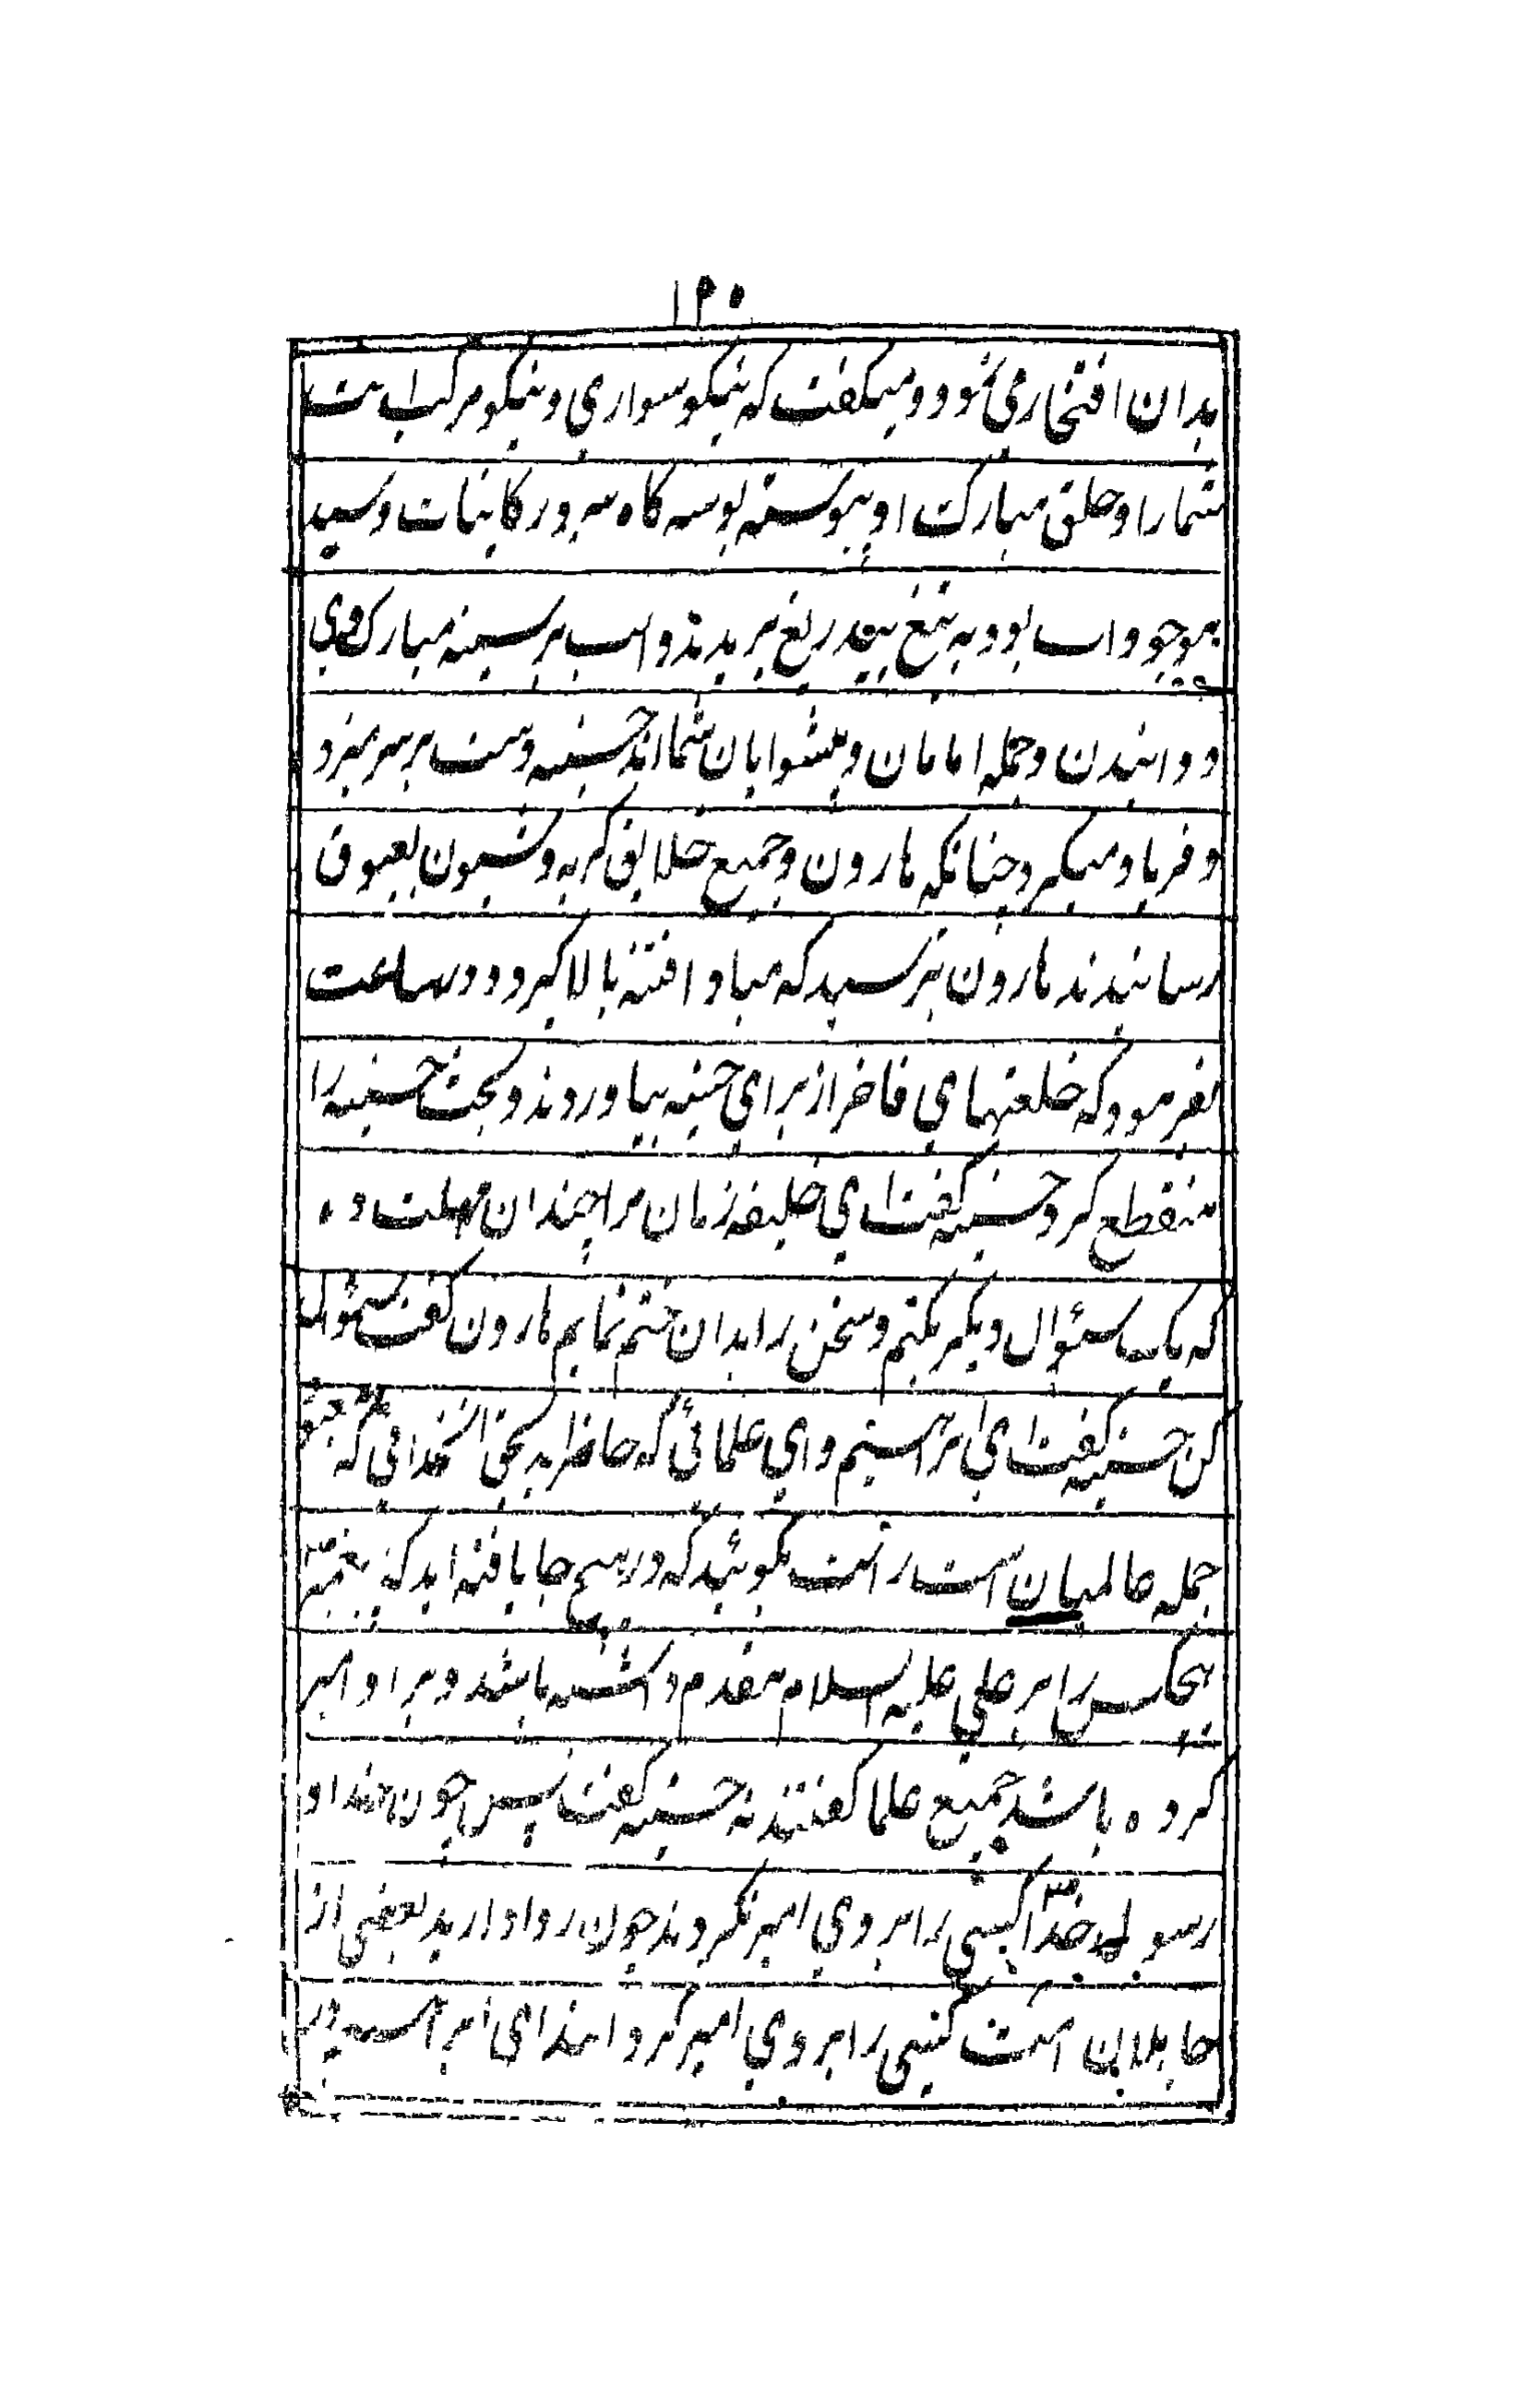 ۱۹۰
بدان افتخار می نمود و میکفت که نیکو سواری و نیکو مرکب است
شما را و حلق مبارک او پیوسته بوسه کاه سرور کاینات و سید
موجودات بود به تیغ بیدریغ ببریدند و اسب بر سینه مبارک وی
دوانیدن و جمله امامان و پیشوایان شما اند حسنیه دست بر سر میزد
و فریاد میکرد چنانکه هارون و جمیع خلایق کریه و شیون بعیوق
رسانیدند هارون بترسید که مبادا فتنه بالا کیرد و در ساعت
بفرمود که خلعتهای فاخر از برای حسنیه بیاوردند و بحث حسنیه را
منقطع کرد حسنیه کفت ای خلیفه زمان مرا چندان مهلت ده
که یک سئوال دیکر بکنم و سخن را بدان ختم نمایم هارون کفت سئوال
کن حسنیه کفت ای ابراهیم و ای علمائی که حاضرید بحق آنخدائی که
جمله عالمیان است راست بکوئید که در هیچ جا یافته اید که پیغمبر
هیچکس را بر علی علیه السلام مقدم داشته باشد و بر او امیر
کرده باشد جمیع علما کفتند نه حسنیه کفت پس چون خدا و
رسول خدا کسی را بر وی امیر نکردند چون روا دارید بعضی از
جاهلان امت کسی را بر وی امیر کردانند ای ابراهیم